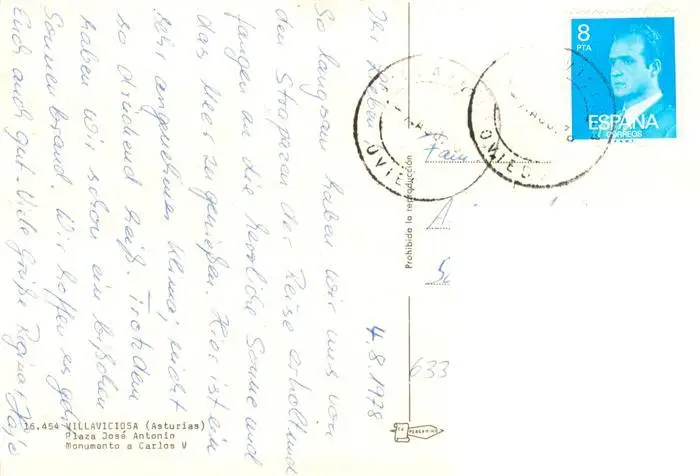 4.8.1978
Ihr Lieben
So langsam haben wir uns von
den Strapazen der Reise erholt und
fangen an die herrliche Sonne und
das Meer zu genießen. Hier ist ein
sehr angenehmes Klima, nicht
so drückend heiß. Trotzdem
haben wir schon ein bißchen
Sonnenbrand. Wir hoffen es geht
Euch auch gut. Viele Grüße Regina +
8
PTA
ESPAÑA
CORREOS
OVIEDO
Fam
633
Prohibida la reproducción
16.454 VILLAVICIOSA (Asturias)
Plaza José Antonio
Monumento a Carlos V